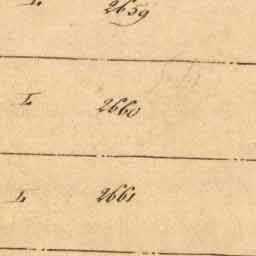 L 2659
L 2660
L 2661